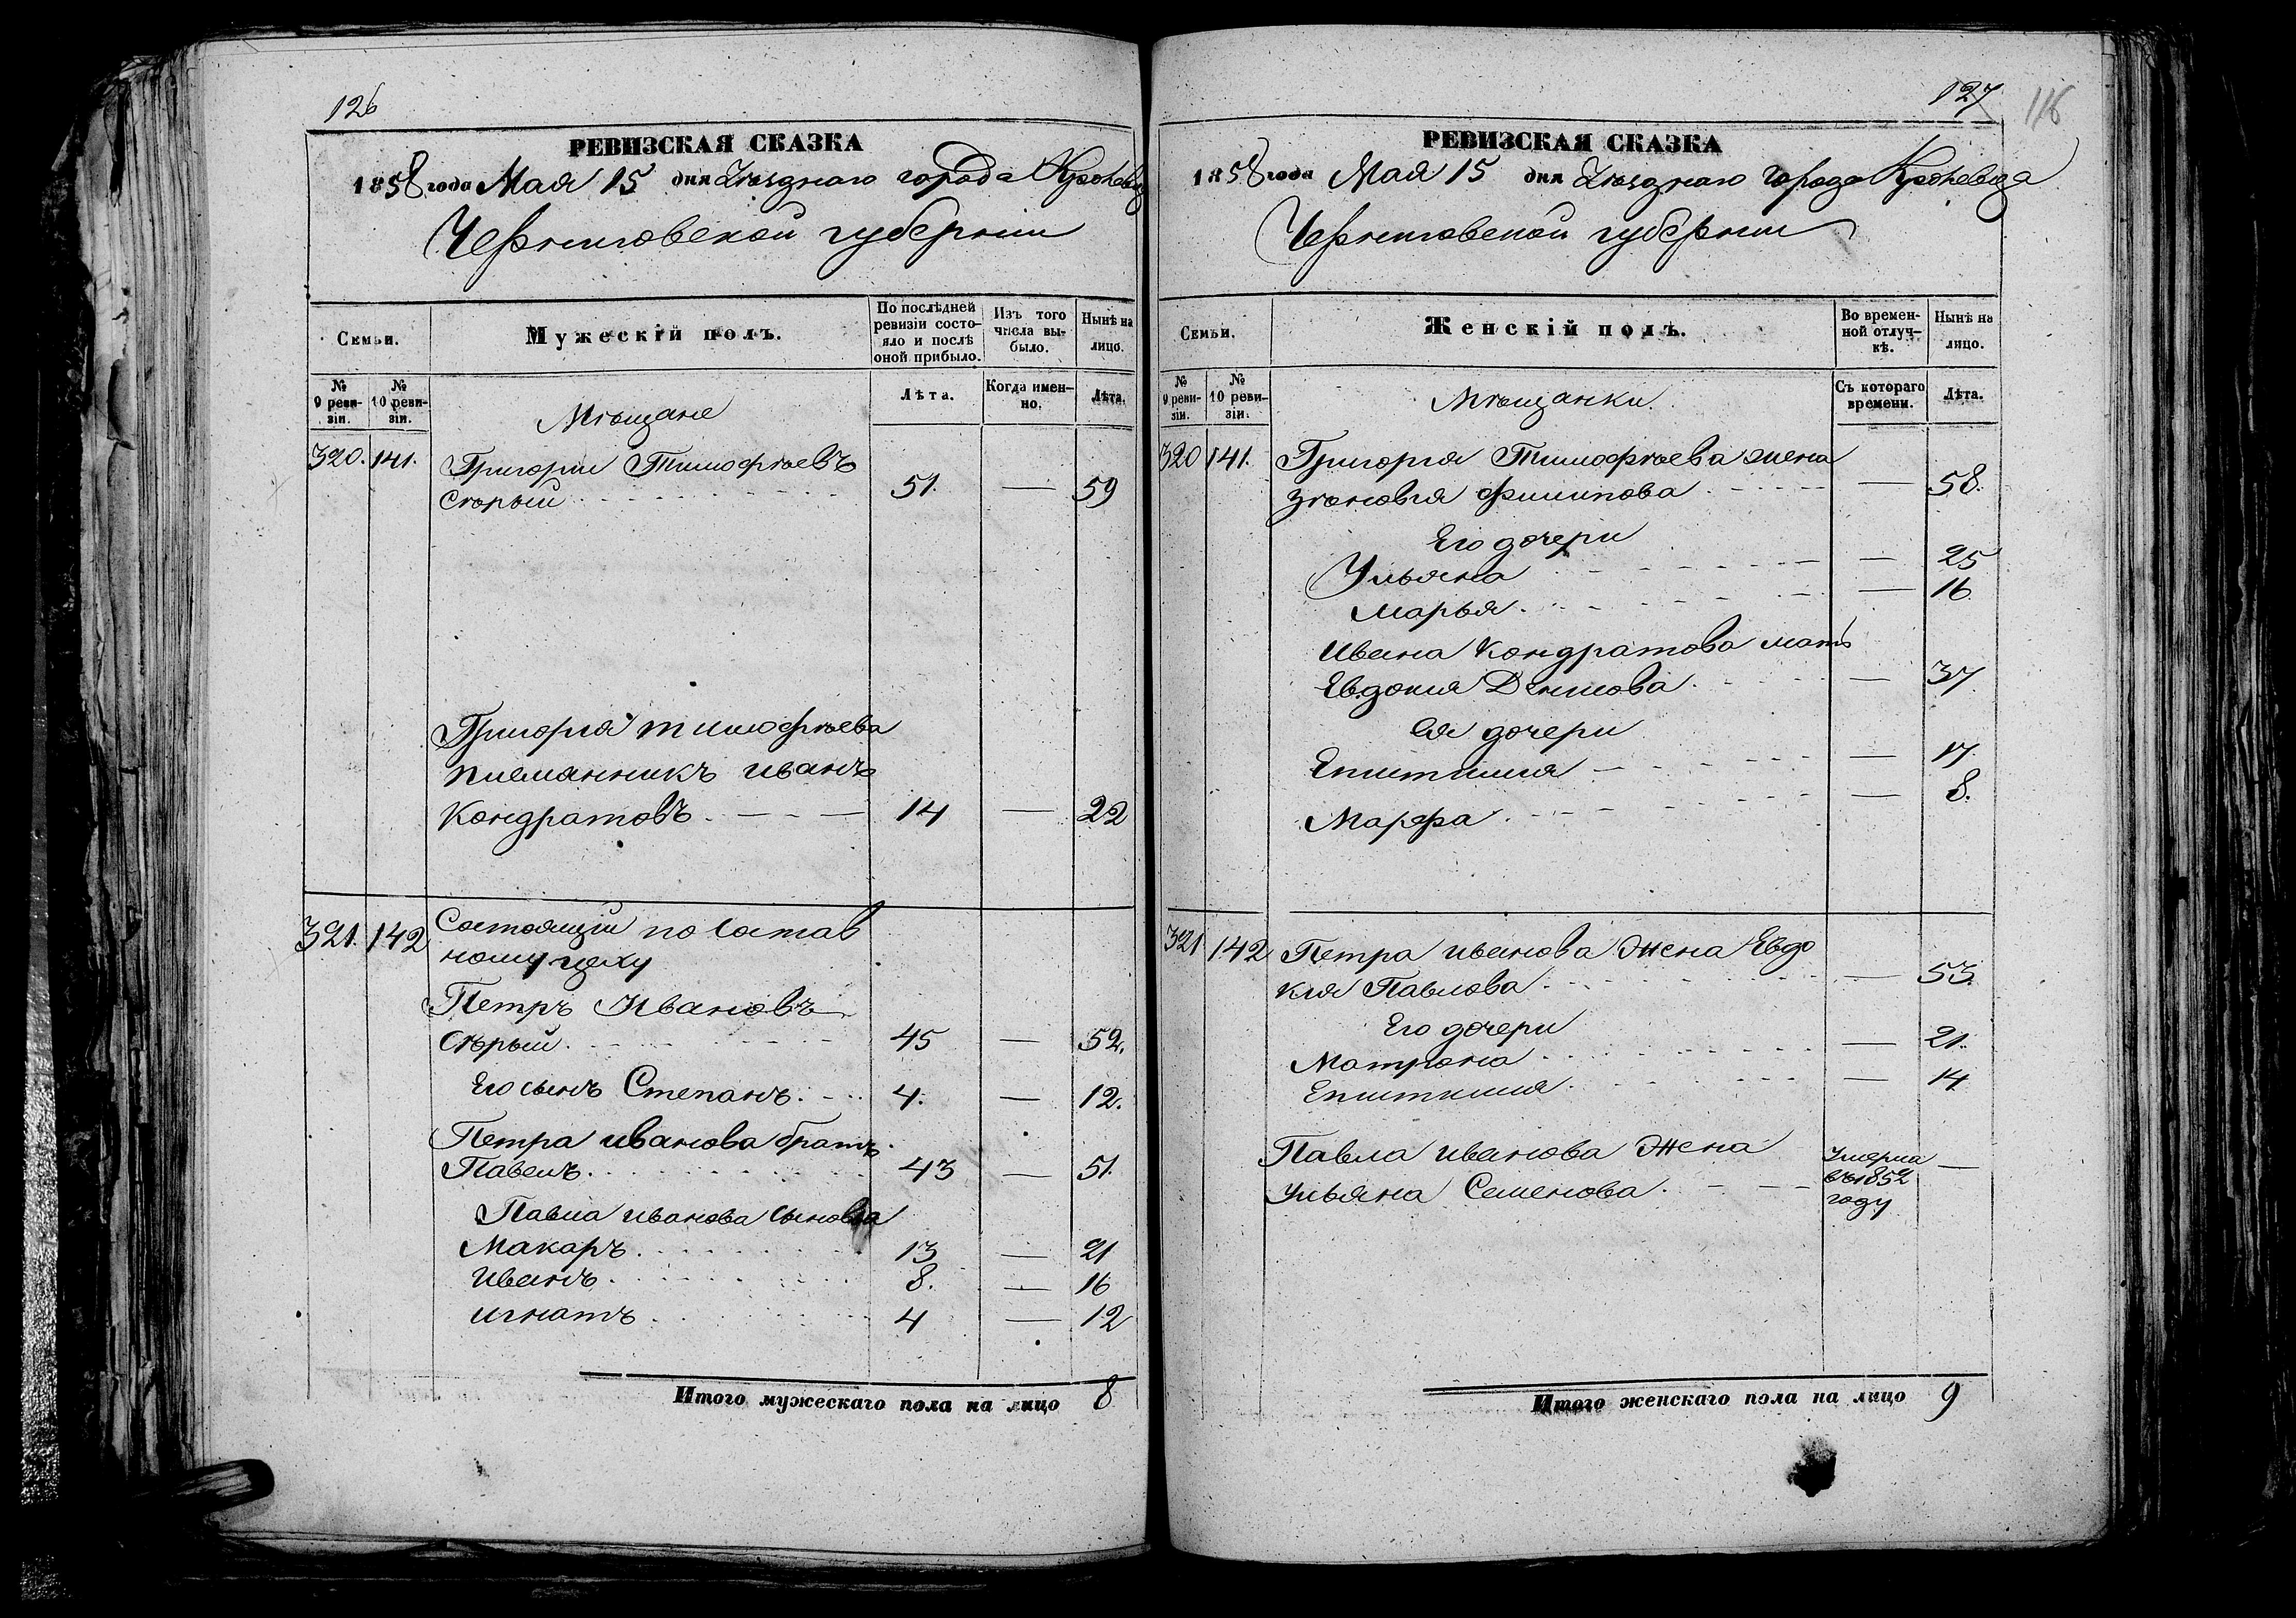 126
РЕВИЗСКАЯ СКАЗКА
1858 года Мая 15 дня Уѣзднаго города Кролевца
Черниговской губерніи
Семьи.
Мужескій полъ.
По послѣдней ревизіи состо-
яло и послѣ
оной прибыло.
Изъ того
числа вы-
было.
Нынѣ на
лицо.
№
9 реви-
зіи.
№
10 реви-
зіи.
Мѣщане
Лѣта.
Когда имен-
но.
Лѣта.
320. 141. Григорій Тимофѣевъ
Сѣрый 51. — 59
Григорія Тимофѣева
племянникъ Иванъ
Кондратовъ 14 — 22
321. 142 Состоящій по
ному цеху
Петръ Ивановъ
Сѣрый. 45 — 52.
Его сынъ Степанъ. 4. — 12.
Петра Иванова братъ
Павелъ. 43 — 51.
Павла Иванова сыновья
Макаръ. 13 — 21
Иванъ. 8. — 16
Игнатъ. 4 — 12
Итого мужескаго пола на лицо 8
127
116
РЕВИЗСКАЯ СКАЗКА
1858 года Мая 15 дня Уѣзднаго города Кролевца
Черниговской губерніи
Семьи.
Женскій полъ.
Во времен-
ной отлуч-
кѣ.
Нынѣ на
лицо.
№
9 реви-
зіи.
№
10 реви-
зіи.
Мѣщанки.
Съ котораго
времени.
Лѣта.
320 141. Григорія Тимофѣева жена
Зѣновія Филипова — 58.
Его дочери
Ульяна — 25
Марья. — 16
Ивана Кондратова мать
Евдокія Денисова. — 37
Ея дочери
Епистимія — 17.
Марфа — 8.
321 142 Петра Иванова жена Евдо
кія Павлова. — 53.
Его дочери
Матрона — 21.
Епистимія — 14
Павла Иванова жена
Ульяна Семенова. Умерла
въ 1852
году —
Итого женскаго пола на лицо 9